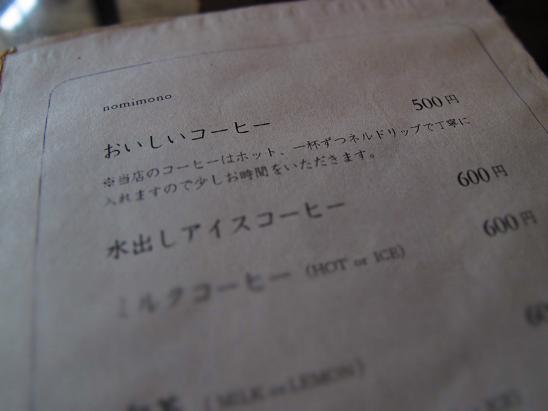 nomimono
おいしいコーヒー 500円
※当店のコーヒーはホット、一杯ずつネルドリップで丁寧に
入れますので少しお時間をいただきます。
水出しアイスコーヒー 600円
ミルクコーヒー (HOT or ICE) 600円
(MILK or LEMON)
ICE)